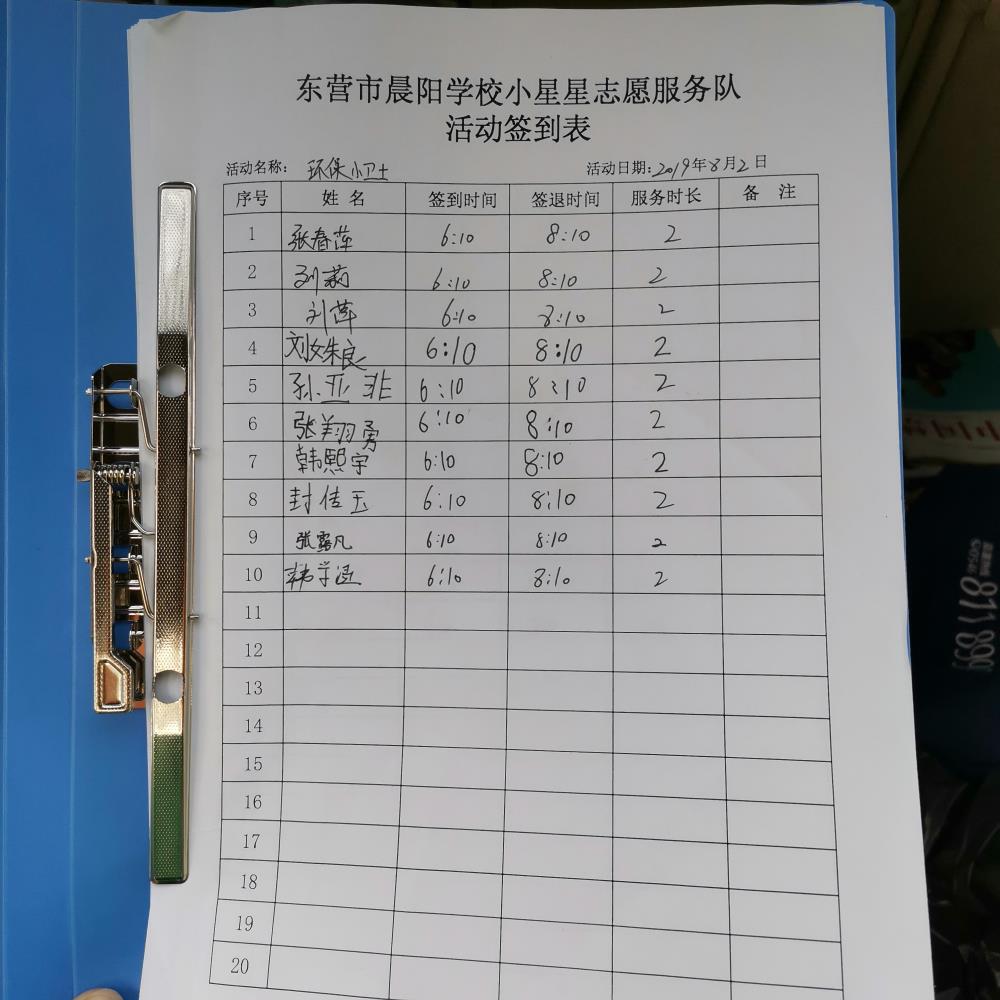 东营市晨阳学校小星星志愿服务队
活动签到表
活动名称: 环保小卫士 活动日期:2019年8月2日
序号 姓名 签到时间 签退时间 服务时长 备注
1 张春萍 6:10 8:10 2
2 刘莉 6:10 8:10 2
3 刘萍 6:10 8:10 2
4 刘姝良 6:10 8:10 2
5 孙亚非 6:10 8:10 2
6 张翔勇 6:10 8:10 2
7 韩熙宇 6:10 8:10 2
8 封佳玉 6:10 8:10 2
9 张露凡 6:10 8:10 2
10 韩学涵 6:10 8:10 2
11
12
13
14
15
16
17
18
19
20